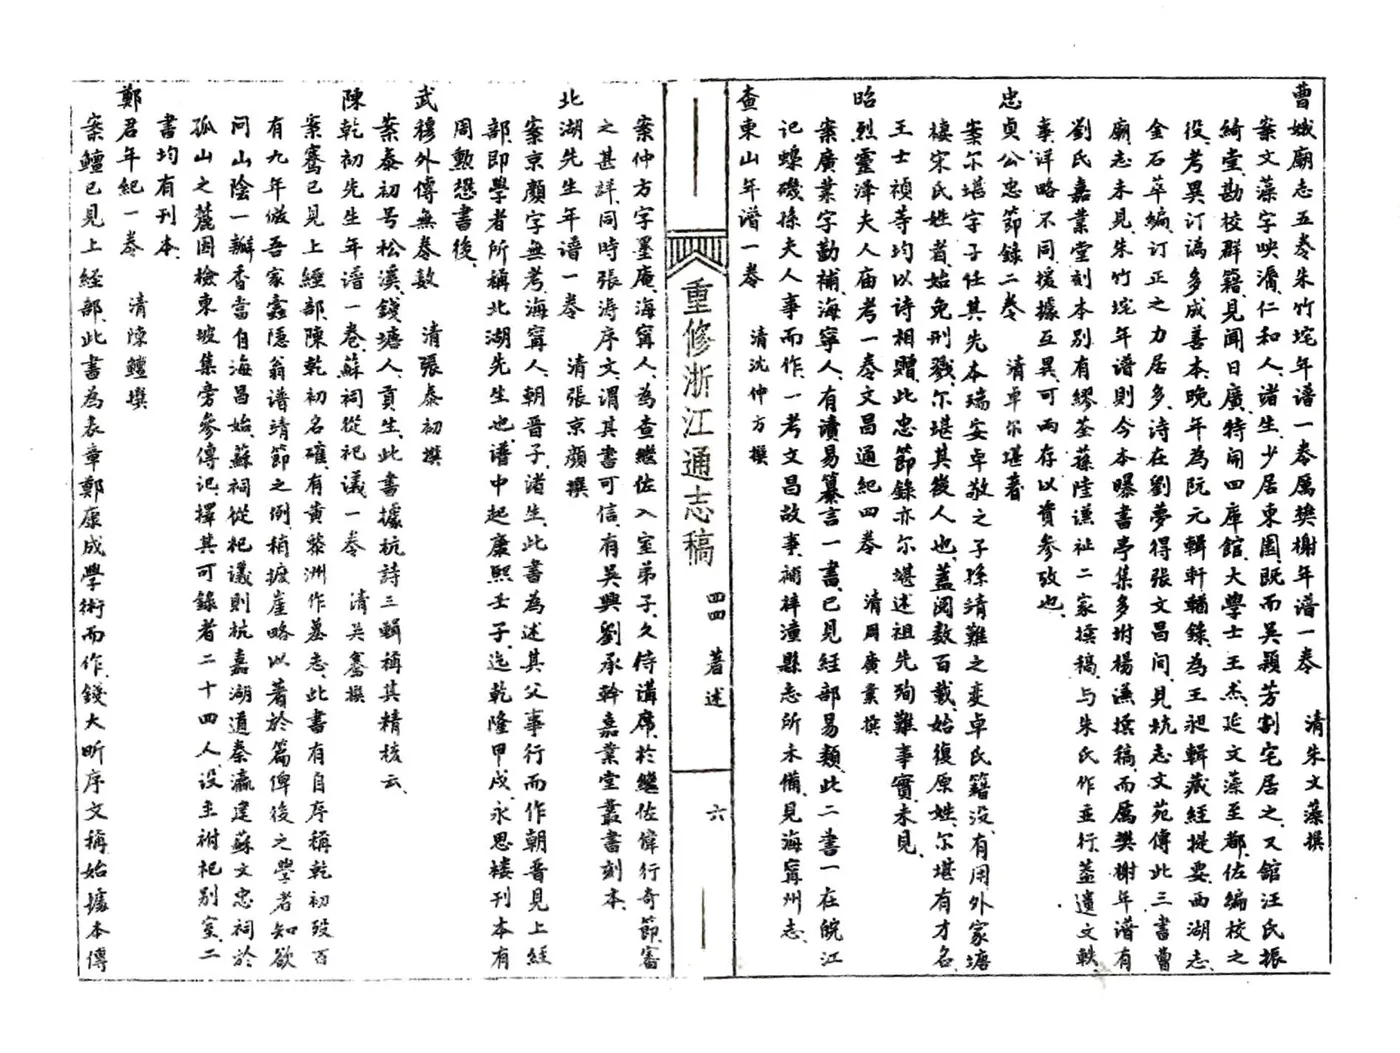 曹娥廟志五卷朱竹垞年谱一卷厲樊榭年谱一卷　清朱文藻撰
案文藻字映漘、仁和人、诸生、少居東園、既而吴颖芳割宅居之、又館汪氏振
綺堂、勘校群籍、見聞日廣、特開四庫館、大學士王杰、延文藻至都、佐編校之
役、考異订譌、多成善本、晚年為阮元輯輶軒錄、為王昶輯藏经提要、西湖志、
金石萃編、订正之力居多、诗在劉夢得張文昌间、見杭志文苑傳、此三書曹
廟志未見、朱竹垞年谱則今本曝書亭集多坿楊谦撰稿、而厲樊榭年谱有
劉氏嘉業堂刻本、别有繆荃蓀陸谦祉二家撰稿、与朱氏作並行、蓋遗文軼
事、详略不同、援據互異、可两存以資参攷也、
忠贞公忠節錄二卷　清卓尔堪著
案尔堪字子任、其先本瑞安卓敬之子孫、靖難之变、卓氏籍没、有用外家塘
棲宋氏姓者、始免刑戮、尔堪其後人也、蓋阅数百載、始復原姓、尔堪有才名、
王士禎等均以诗相贈、此忠節錄亦尔堪述祖先殉難事實、未見、
昭烈靈泽夫人庙考一卷文昌通紀四卷　清周廣業撰
案廣業字勤補、海寧人、有讀易纂言一書、已見经部易類、此二書一在皖江
记蟂磯孫夫人事而作、一考文昌故事、補梓潼縣志所未備、見海寧州志、
查東山年谱一卷　清沈仲方撰
案仲方字墨庵、海寧人、為查繼佐入室弟子、久侍講席、於繼佐偉行奇節、審
之甚詳、同時張涛序文、谓其書可信、有吴興劉承幹嘉業堂叢書刻本、
北湖先生年谱一卷　清張京顏撰
案京顏字無考、海寧人、朝晋子、诸生、此書為述其父事行而作、朝晋見上经
部、即學者所稱北湖先生也、谱中起康熙壬子、迄乾隆甲戌、永思楼刊本、有
周勳懋書後、
武穆外傳無卷数　清張泰初撰
案泰初号松溪、錢塘人、貢生、此書據杭詩三輯稱其精核云、
陳乾初先生年谱一卷、蘇祠從祀议一卷　清吴騫撰
案騫已見上經部、陳乾初名確、有黄黎洲作墓志、此書有自序稱乾初殁百
有九年、倣吾家斋隱翁谱靖節之例、稍摭崖略、以著於篇、俾後之學者知欲
问山陰一瓣香、當自海昌始、蘇祠從祀議則杭嘉湖道秦瀛建蘇文忠祠於
孤山之麓、因檢東坡集旁參傳记、擇其可錄者二十四人、设主祔祀别室、二
書均有刊本、
鄭君年紀一卷　清陳鱣撰
案鱣已見上经部、此書為表章鄭康成學術而作、錢大昕序文稱始據本傳
重修浙江通志稿　四四　著述　六